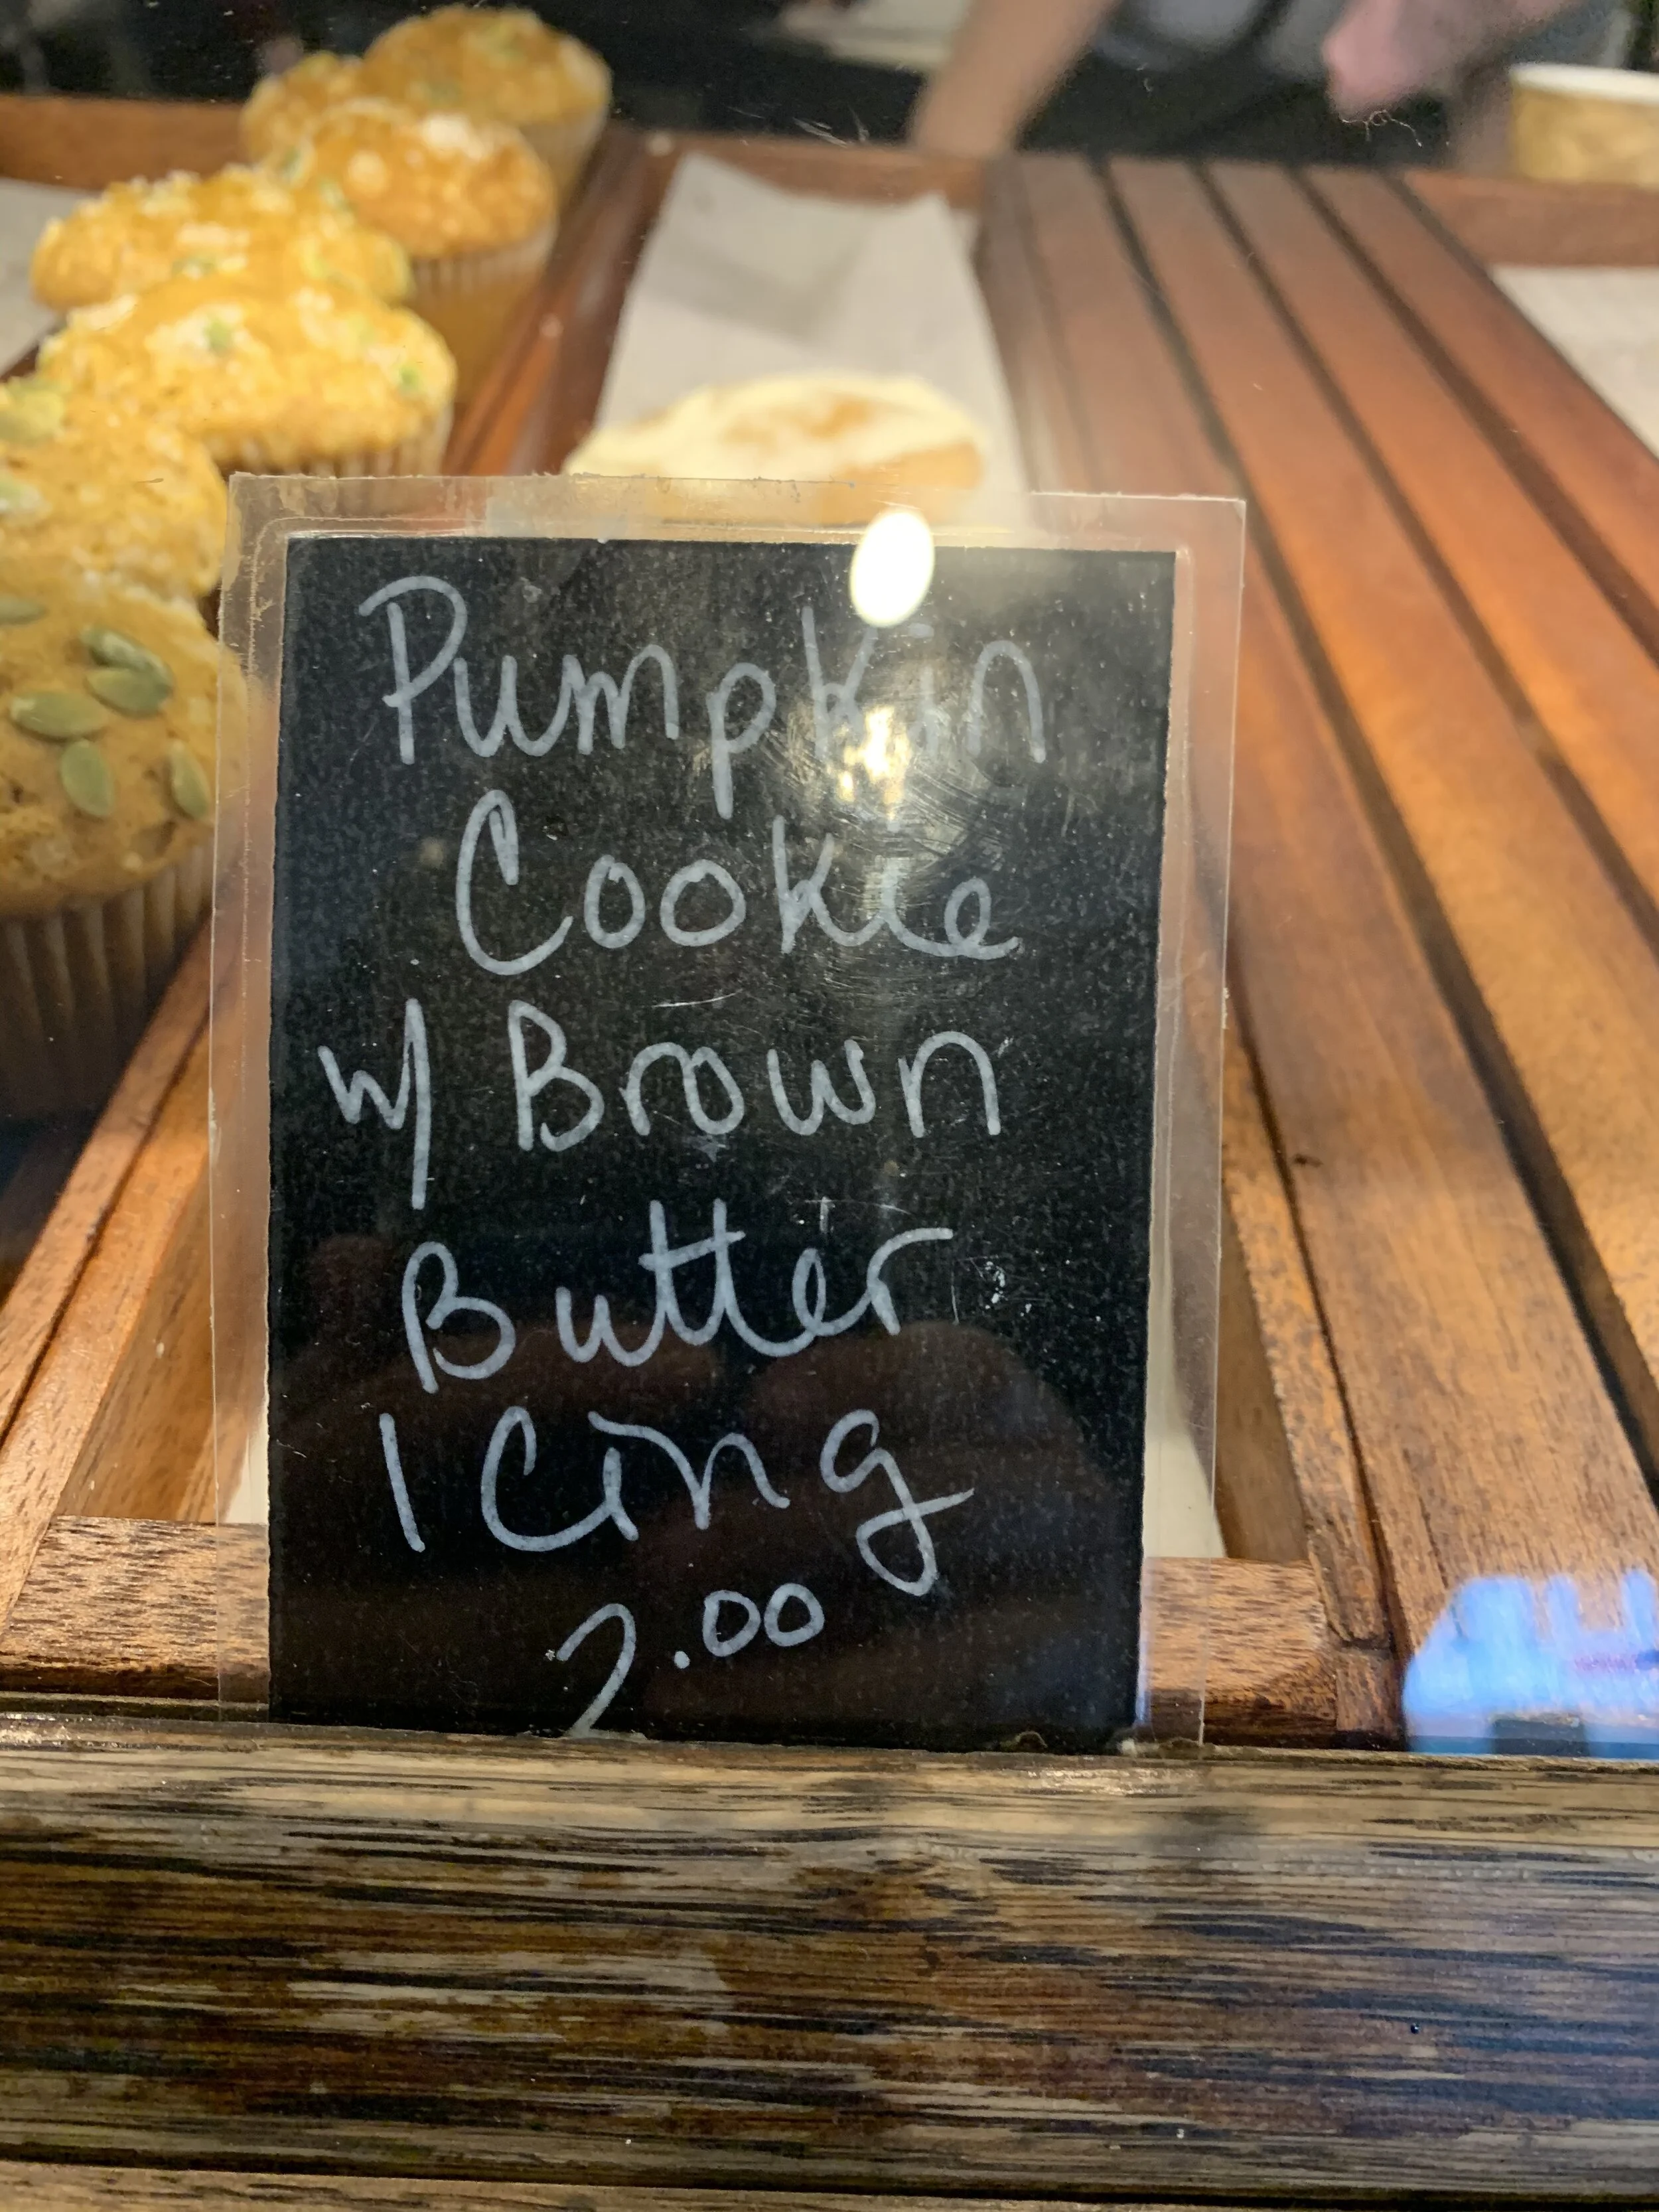 Pumpkin
Cookie
w/ Brown
Butter
Icing
2.00